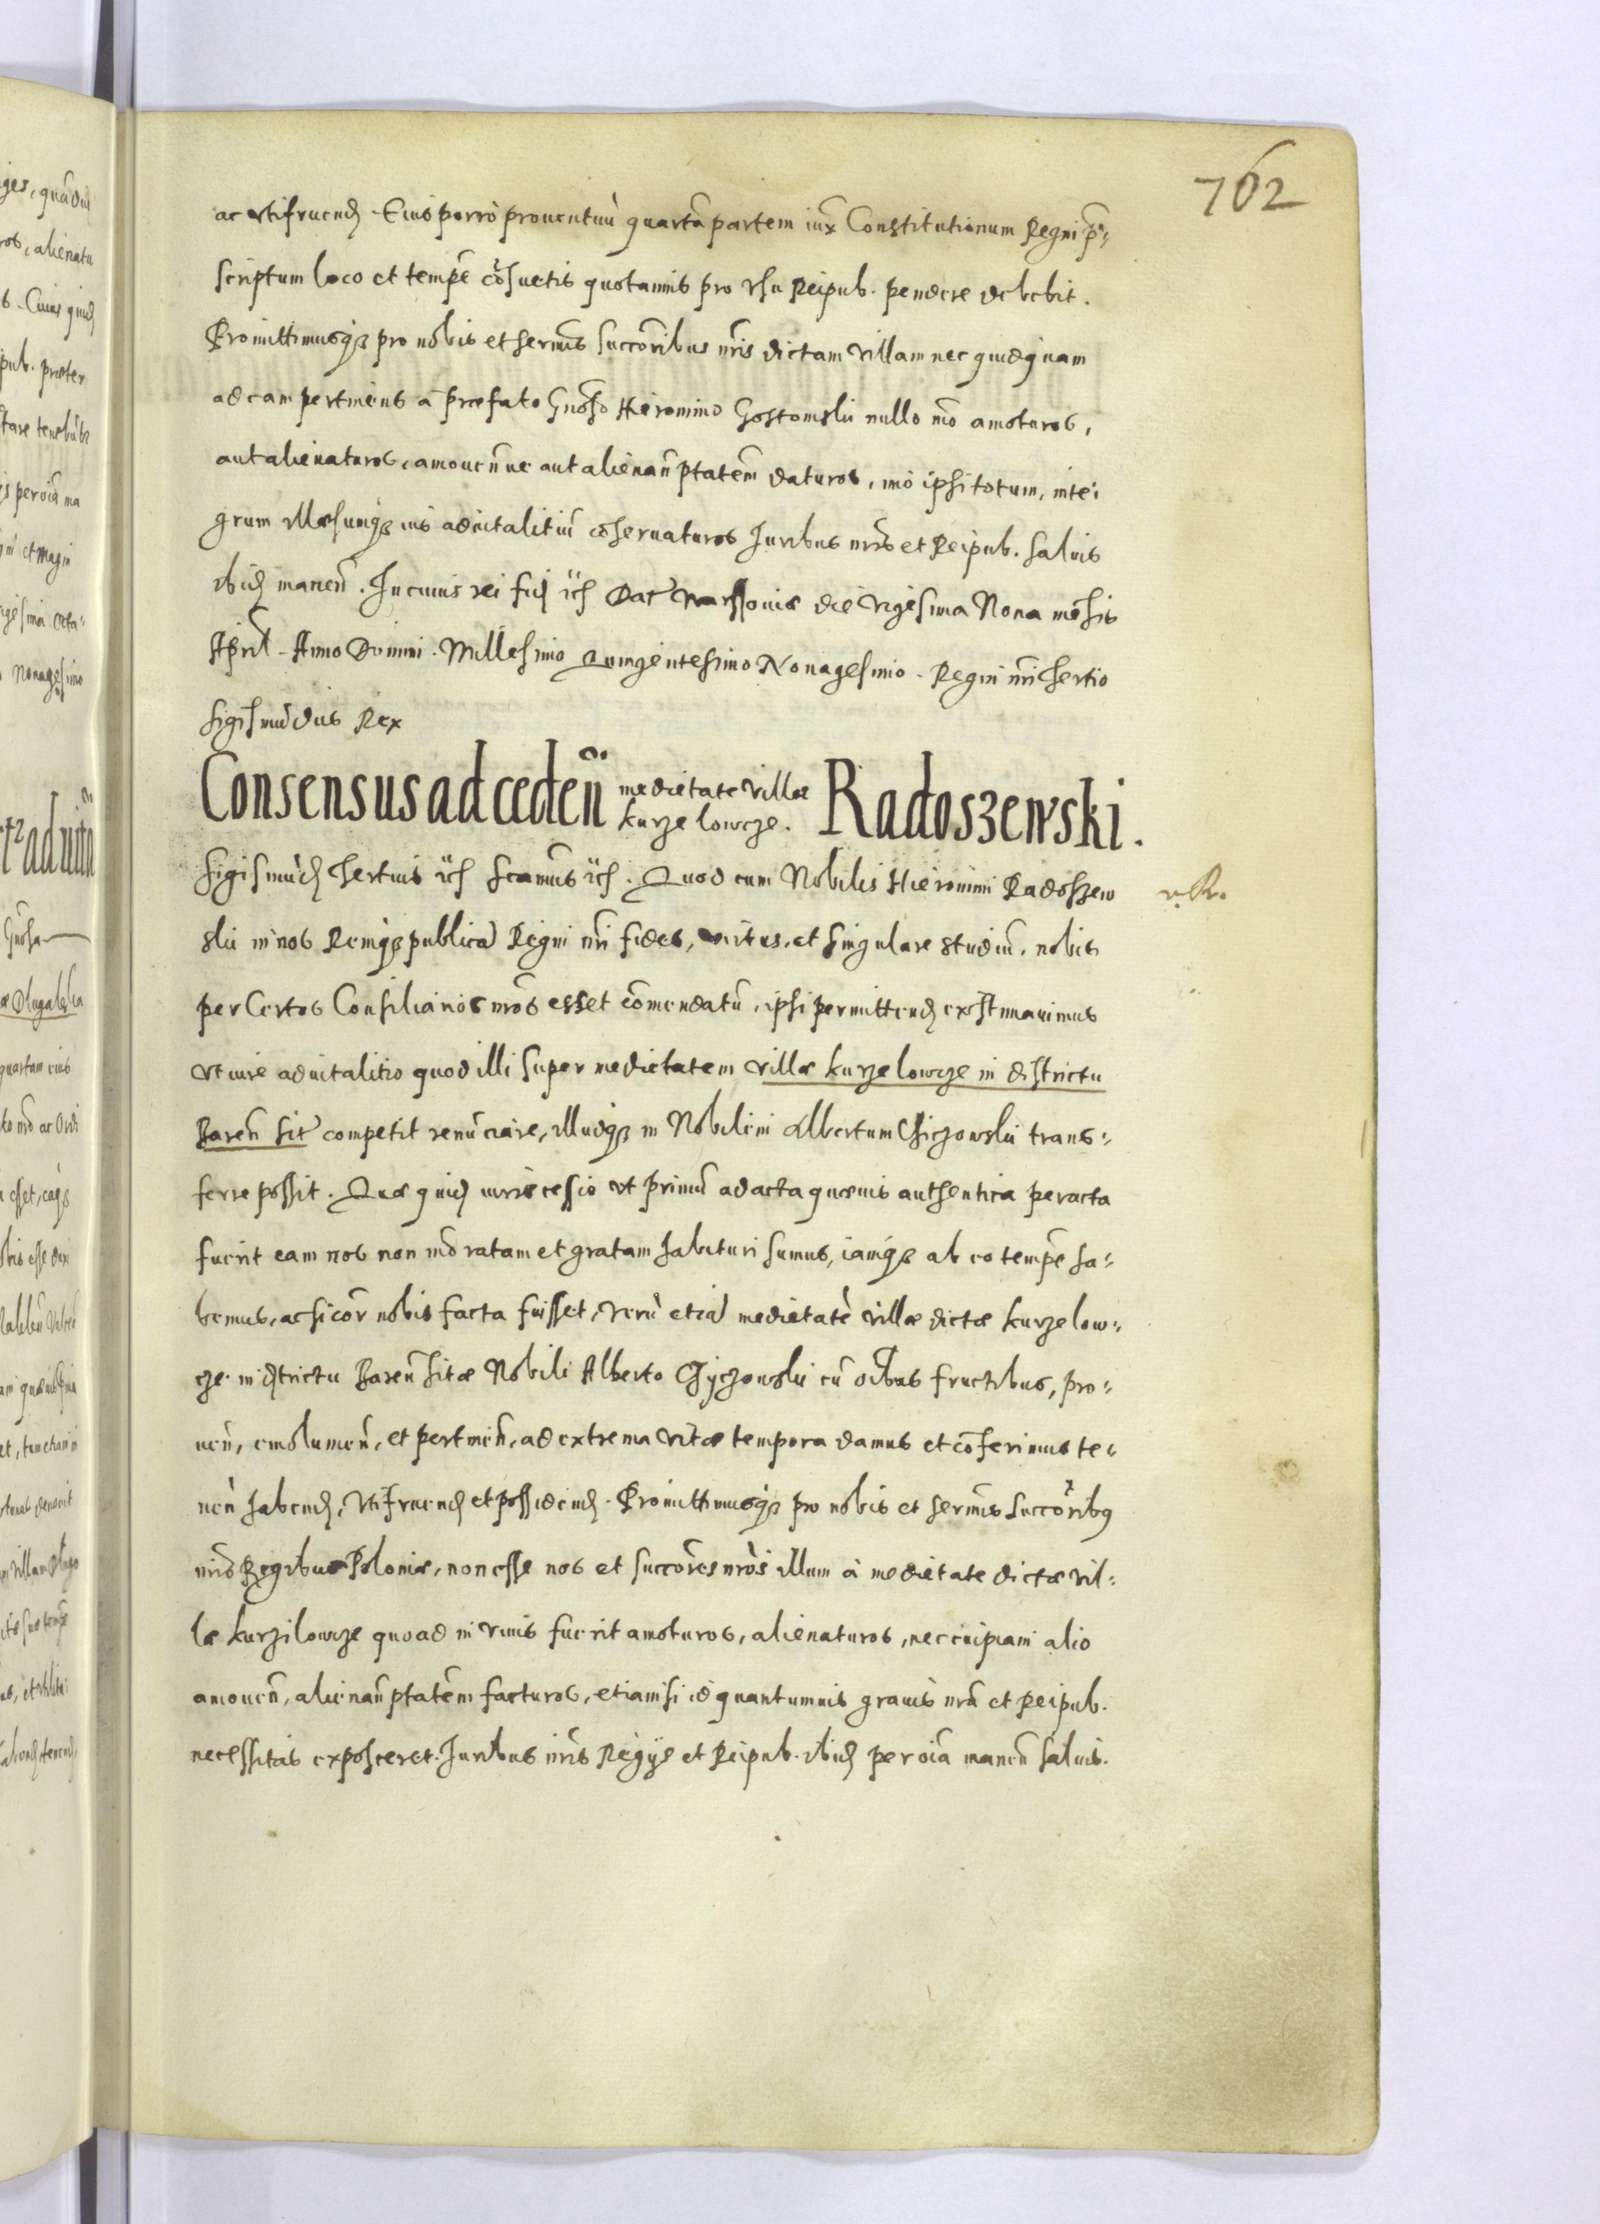 762
ac utifruend. Eius porro prouentuũ quartã partem iux Constitutionum Regni p̃:
scriptum loco et temp̃e cõsuetis quotannis pro usu Reipub. pendere debebit.
Promittimusq3 pro nobis et sermis succoribus nr̃is dictam villam nec quidquam
ad eam pertinens a præfato Gnoso Hieronimo Gostomski nullo mõ amoturos,
aut alienaturos, amouen̄ ue aut alienan̄ p̃tatem daturos, imo ipsi totum, inte:
grum illæsumq3 ius aduitalitiũ cõseruaturos Juribus nr̃is et Reipub. saluis
ibid manen̄. In cuius rei fid etc Dat Warssouiæ die Vigesima Nona mẽsis
April. Anno Domini. Millesimo Quingentesimo Nonagesimo. Regni nr̃i tertio
Sigismũdus Rex
Consensus ad ceden̄ medietate villæ Kurzelowcze. Radoszewski.
Sigismũd tertius etc Scamus etc. Quod cum Nobilis Hieronimi Radoszew
v. R.
ski in nos Remq3 publicã Regni nr̃i fides, virtus, et singulare studiũ, nobis
per Certos Consiliarios nr̃os esset cõmendatũ, ipsi permittend existimauimus
ut iure aduitalitio quod illi super medietatem villæ Kurzelowcze in districtu
Baren̄ sit competit renũciare, illudq3 in Nobilem Albertum Chiczowski trans:
ferre possit. Quæ quid iuris cessio ut primũ ad acta quæuis authentica peracta
fuerit eam nos non mõ ratam et gratam habituri sumus, iamq3 ab eo temp̃e ha:
bemus, ac si cor̃ nobis facta fuisset, verũ etiã medietatẽ villæ dictæ Kurzelow:
cze in districtu Baren̄ sitæ Nobili Alberto Chyczowski cũ oĩbus fructibus, pro:
uen̄, emolumen̄, et pertinen̄, ad extrema vitæ tempora damus et cõferimus te:
nen̄ habend, utifruend et possidend. Promittimusq3 pro nobis et sermis succoribus
nr̃is Regibus Poloniæ, non esse nos et succores nr̃os illum à medietate dictæ vil:
læ Kurzilowcze quoad in viuis fuerit amoturos, alienaturos, nec cuipiam alio
amouen̄, alienan̄ p̃tatem facturos, etiamsi id quantumuis grauis nr̃a et Reipub.
necessitas exposceret. Juribus nr̃is Regijs et Reipub. ibid per oĩa manen̄ saluis.